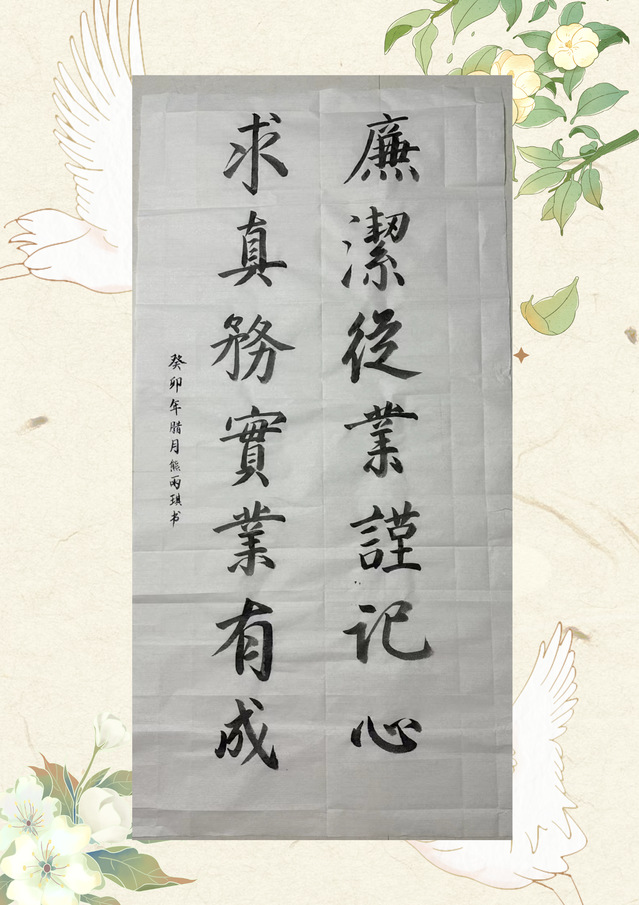 廉潔從業謹记心
求真務實業有成
癸卯年腊月熊雨琪书